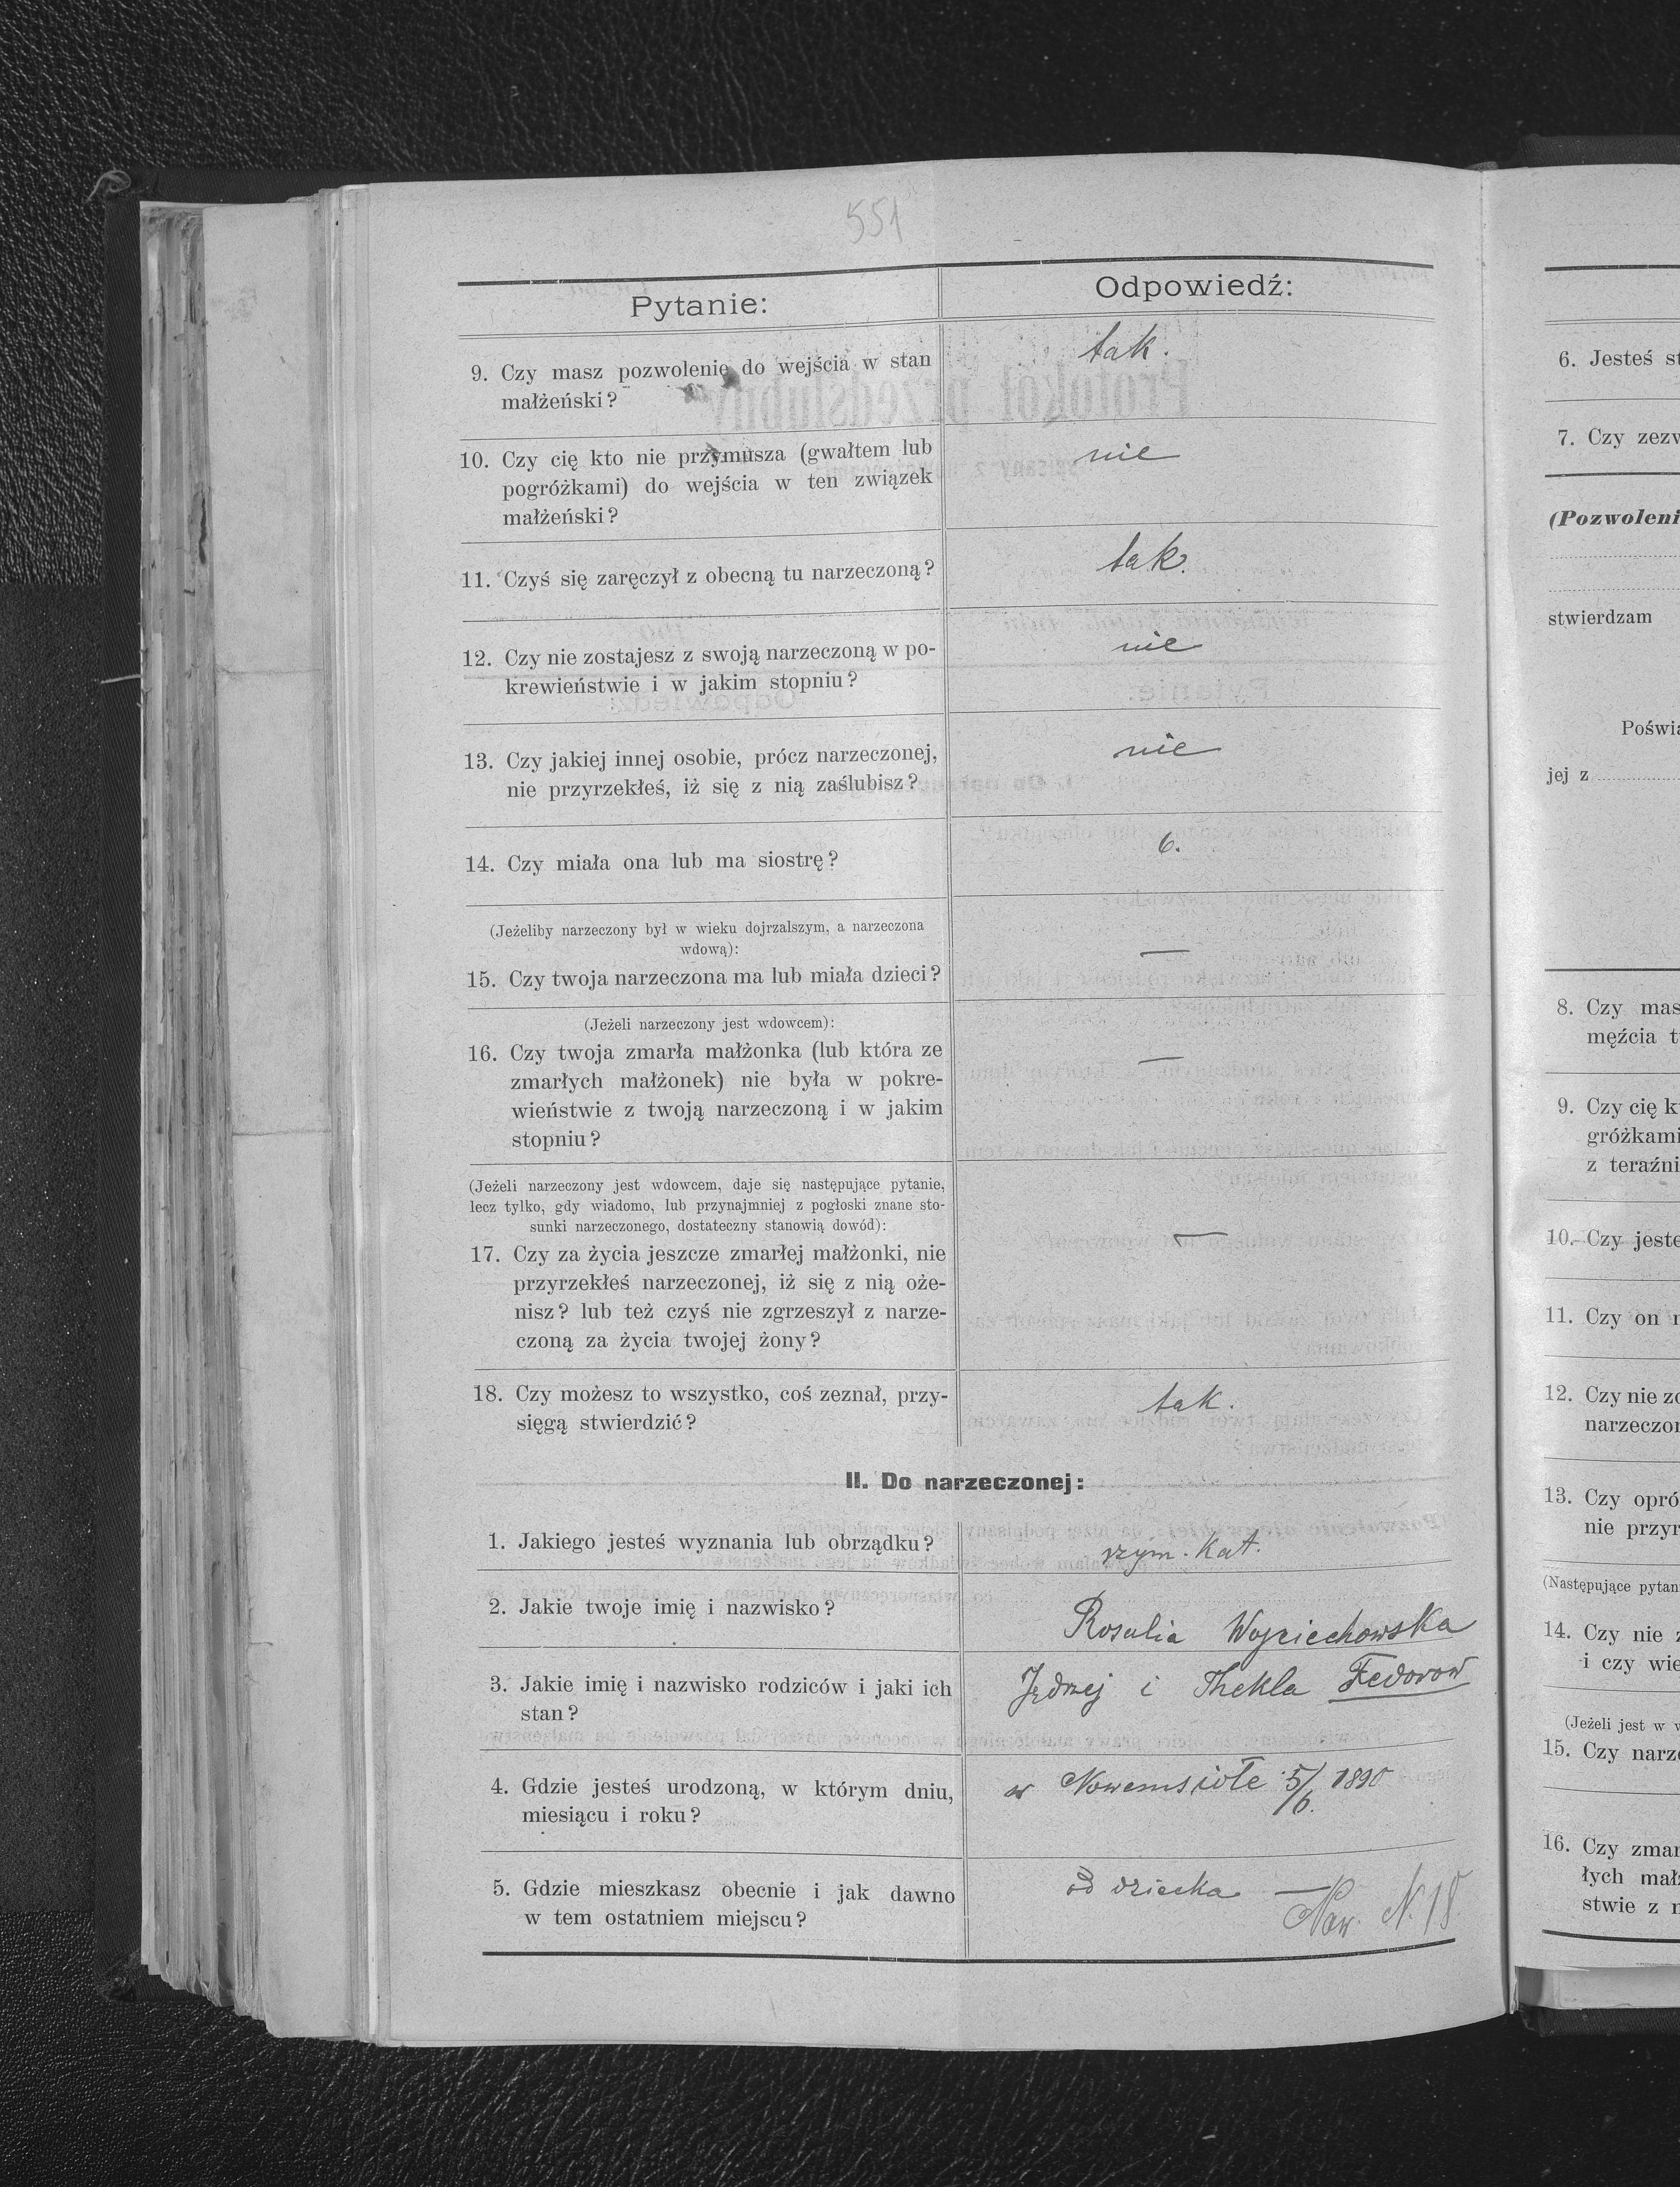 551
Pytanie:
Odpowiedź:
9. Czy masz pozwolenie do wejścia w stan
małżeński?
tak.
10. Czy cię kto nie przymusza (gwałtem lub
pogróżkami) do wejścia w ten związek
małżeński?
nie
11. Czyś się zaręczył z obecną tu narzeczoną?
tak.
12. Czy nie zostajesz z swoją narzeczoną w po-
krewieństwie i w jakim stopniu?
nie
13. Czy jakiej innej osobie, prócz narzeczonej,
nie przyrzekłeś, iż się z nią zaślubisz?
nie
14. Czy miała ona lub ma siostrę?
6.
(Jeżeliby narzeczony był w wieku dojrzalszym, a narzeczona
wdową):
15. Czy twoja narzeczona ma lub miała dzieci?
—
(Jeżeli narzeczony jest wdowcem):
16. Czy twoja zmarła małżonka (lub która ze
zmarłych małżonek) nie była w pokre-
wieństwie z twoją narzeczoną i w jakim
stopniu?
—
(Jeżeli narzeczony jest wdowcem, daje się następujące pytanie,
lecz tylko, gdy wiadomo, lub przynajmniej z pogłoski znane sto-
sunki narzeczonego, dostateczny stanowią dowód):
17. Czy za życia jeszcze zmarłej małżonki, nie
przyrzekłeś narzeczonej, iż się z nią oże-
nisz? lub też czyś nie zgrzeszył z narze-
czoną za życia twojej żony?
—
18. Czy możesz to wszystko, coś zeznał, przy-
sięgą stwierdzić?
tak.
II. Do narzeczonej:
1. Jakiego jesteś wyznania lub obrządku?
rzym. Kat.
2. Jakie twoje imię i nazwisko?
Rosalia Wojciechowska
3. Jakie imię i nazwisko rodziców i jaki ich
stan?
Jędrzej i Thekla Fedorow
4. Gdzie jesteś urodzoną, w którym dniu,
miesiącu i roku?
w Nowemsiole 5/6. 1890
5. Gdzie mieszkasz obecnie i jak dawno
w tem ostatniem miejscu?
od dziecka —
N. 18
6. Jesteś
7. Czy
(Pozwoleni
stwierdzam
Poświa
jej z
8. Czy mas
męźcia
9. Czy cię
gróżkami
z teraźni
10. Czy jeste
11. Czy on
12. Czy nie
narzeczon
13. Czy opró
nie przyr
(Następujące pytan
14. Czy nie
i czy wie
(Jeżeli jest w
15. Czy narze
16. Czy zmar
łych małż
stwie z